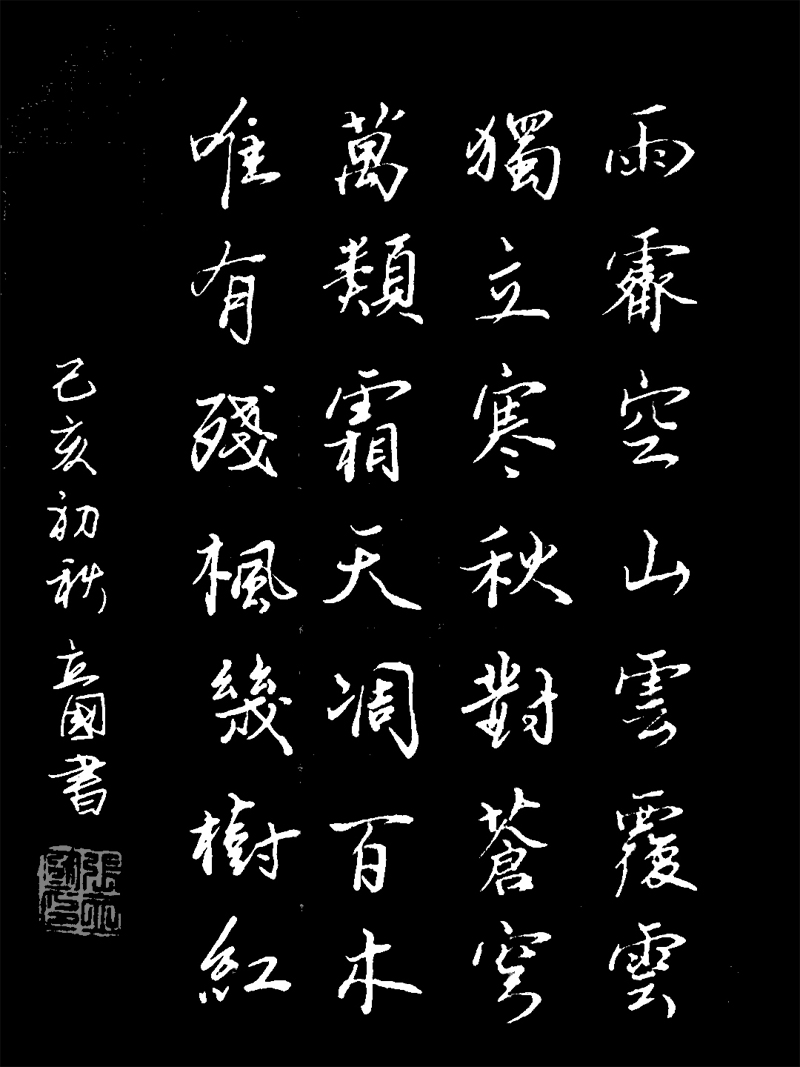 雨霽空山雲覆雲
獨立寒秋對蒼穹
萬類霜天凋百木
唯有殘楓幾樹紅
己亥初秋立國書